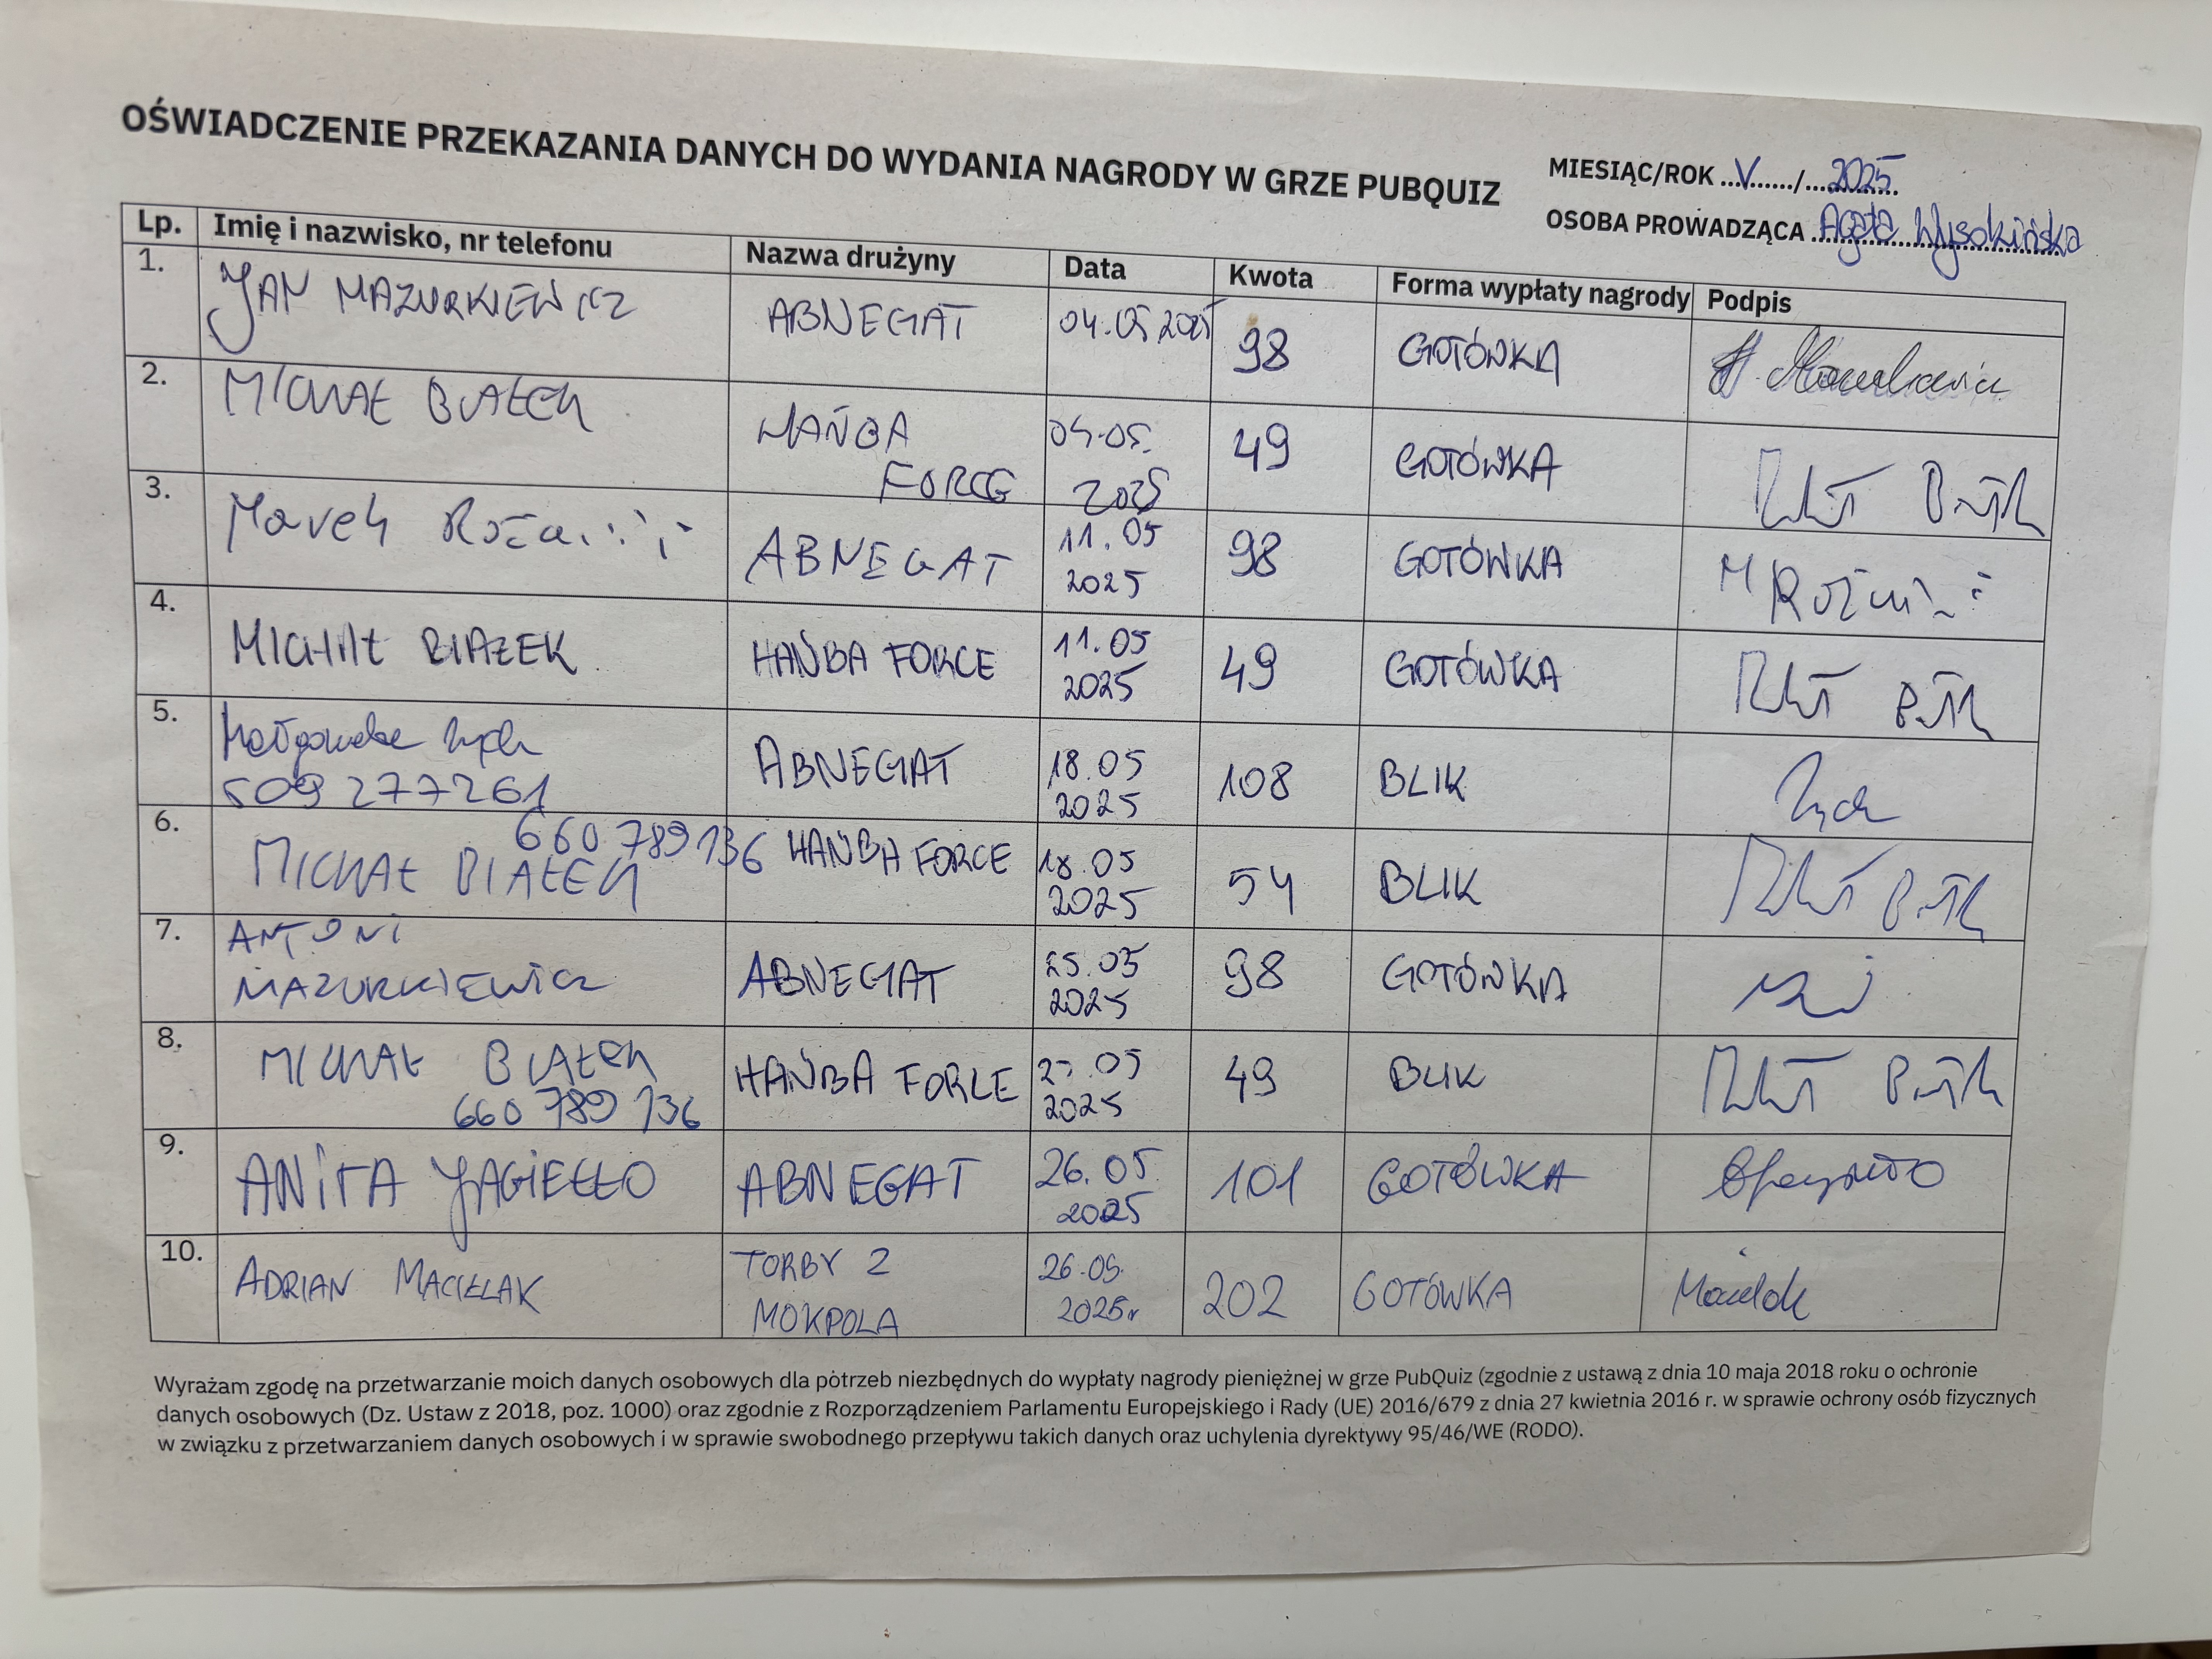 OŚWIADCZENIE PRZEKAZANIA DANYCH DO WYDANIA NAGRODY W GRZE PUBQUIZ
MIESIĄC/ROK ...V....../...2025
OSOBA PROWADZĄCA Agata Wysokińska
Lp. Imię i nazwisko, nr telefonu Nazwa drużyny Data Kwota Forma wypłaty nagrody Podpis
1. JAN MAZURKIEWICZ ABNEGAT 04.05.2025 98 GOTÓWKA
2. MICHAŁ BIAŁEK HAŃBA FORCE 04.05. 2025 49 GOTÓWKA
3. Marek ABNEGAT 11.05 2025 98 GOTÓWKA
4. MICHAŁ BIAŁEK HAŃBA FORCE 11.05 2025 49 GOTÓWKA
5. Małgorzata Zych
509 277261 ABNEGAT 18.05 2025 108 BLIK Zych
6. 660 789 136
MICHAŁ BIAŁEK HAŃBA FORCE 18.05 2025 54 BLIK
7. ANTONI
MAZURKIEWICZ ABNEGAT 25.05 2025 98 GOTÓWKA
8. MICHAŁ BIAŁEK
660 789 136 HAŃBA FORCE 25.05 2025 49 BLIK
9. ANITA JAGIEŁŁO ABNEGAT 26.05 2025 101 GOTÓWKA
10. ADRIAN MACIELAK TORBY Z
MOKPOLA 26.05. 2025r 202 GOTÓWKA
Wyrażam zgodę na przetwarzanie moich danych osobowych dla potrzeb niezbędnych do wypłaty nagrody pieniężnej w grze PubQuiz (zgodnie z ustawą z dnia 10 maja 2018 roku o ochronie
danych osobowych (Dz. Ustaw z 2018, poz. 1000) oraz zgodnie z Rozporządzeniem Parlamentu Europejskiego i Rady (UE) 2016/679 z dnia 27 kwietnia 2016 r. w sprawie ochrony osób fizycznych
w związku z przetwarzaniem danych osobowych i w sprawie swobodnego przepływu takich danych oraz uchylenia dyrektywy 95/46/WE (RODO).